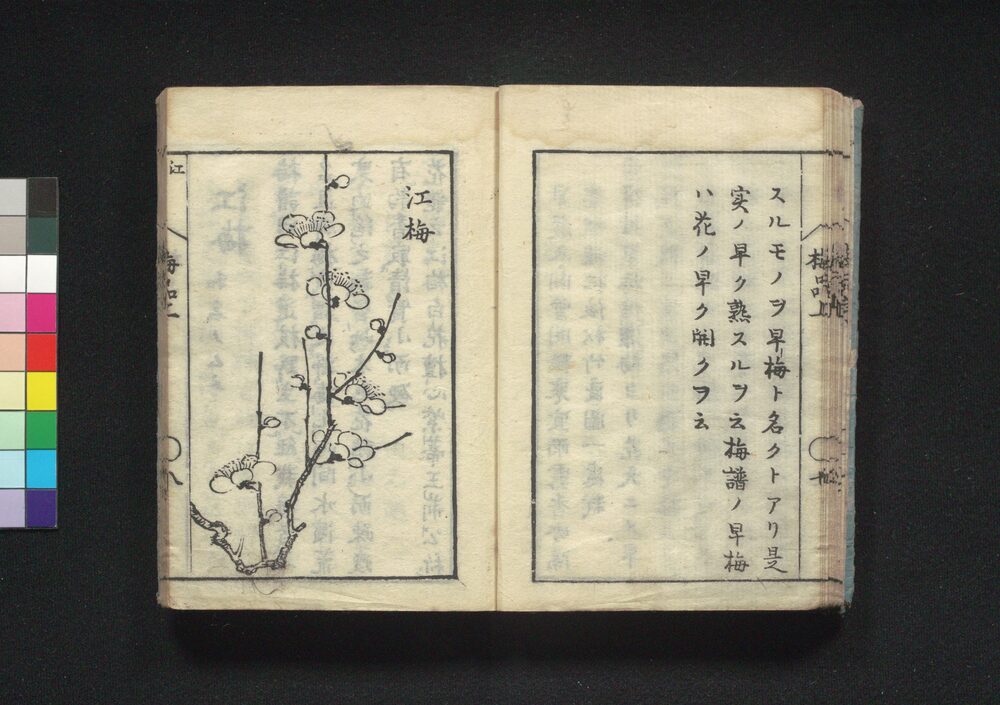 スルモノヲ早梅ト名クトアリ是
実ノ早ク熟スルヲ云梅譜ノ早梅
ハ花ノ早ク開クヲ云
梅品上
江梅
江
梅品上